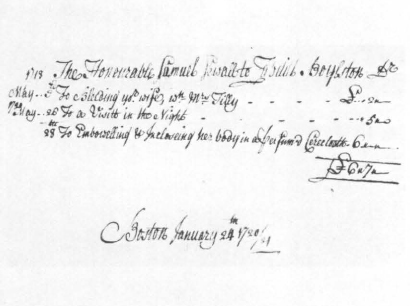 1718 The Honourable Samuel Sewall to Zabdiel Boylston Dr
May To Bleeding yor wife, wth Mrs Tilly - - - £
1720 May 26 To a Visitt in the Night - - - 5
28 To Embowelling & Inclosing her body in a Perfum'd Cerecloath 6
£6
Boston January 24th 1720/21